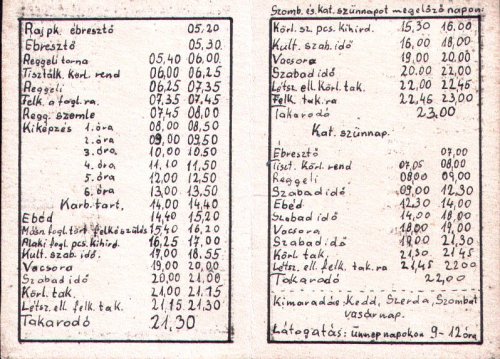 Raj pk. ébresztő 05,20
Ébresztő 05,30
Reggeli torna 05,40 06,00
Tisztálk. körl. rend 06,00 06,25
Reggeli 06,25 07,35
Felk. a fogl. ra. 07,35 07,45
Regg. szemle 07,45 08,00
Kiképzés 1. óra 08,00 08,50
2. óra 09,00 09,50
3. óra. 10,00 10,50
4. óra. 11,10 11,50
5. óra 12,00 12,50
6. óra 13,00 13,50
Karb. tart. 14,00 14,40
Ebéd 14,40 15,20
Másn. fogl. tört. felkészülés 15,40 16,20
Alaki fogl. pcs. kihird. 16,25 17,00
Kult. szab. idő. 17,00 18,55
Vacsora 19,00 20,00
Szabad idő 20,00 21,00
Körl. tak. 21,00 21,15
Létsz. ell. felk. tak. 21,15 21,30
Takarodó 21,30
Szomb. és. Kat. szünnapot megelőző napon:
Körl. sz. pcs. kihird. 15,30 16,00
Kult. szab. idő 16,00 18,00
Vacsora 19,00 20,00
Szabad idő 20,00 22,00
Létsz. ell. Körl. tak. 22,00 22,45
Felk. tak. ra 22,45 23,00
Takarodó 23,00
Kat. szünnap.
Ébresztő 07,00
Tiszt. Körl. rend 07,05 08,00
Reggeli 08,00 09,00
Szabad idő 09,00 12,30
Ebéd 12,30 14,00
Szabad idő 14,00 18,00
Vacsora 18,00 19,00
Szabad. idő 19,00 21,30
Körl. tak 21,30 21,45
Létsz. ell. felk. tak. ra 21,45 22,00
Takarodó 22,00
Kimaradás: Kedd, Szerda, Szombat
vasárnap.
Látogatás: ünnepnapokon 9-12 óra